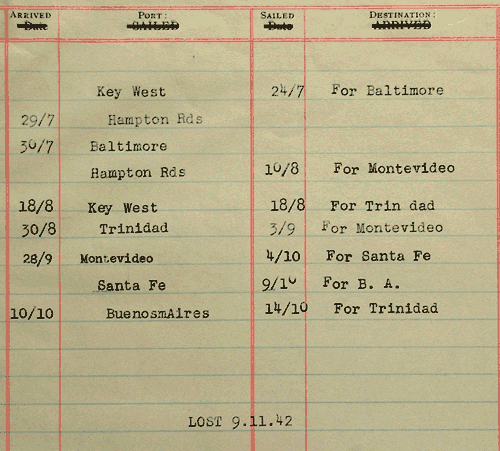 ARRIVED PORT: SAILED DESTINATION:
Date SAILED Date ARRIVED
Key West 24/7 For Baltimore
29/7 Hampton Rds
30/7 Baltimore
Hampton Rds 10/8 For Montevideo
18/8 Key West 18/8 For Trin dad
30/8 Trinidad 3/9 For Montevideo
28/9 Montevideo 4/10 For Santa Fe
Santa Fe 9/10 For B. A.
10/10 BuenosmAires 14/10 For Trinidad
LOST 9.11.42